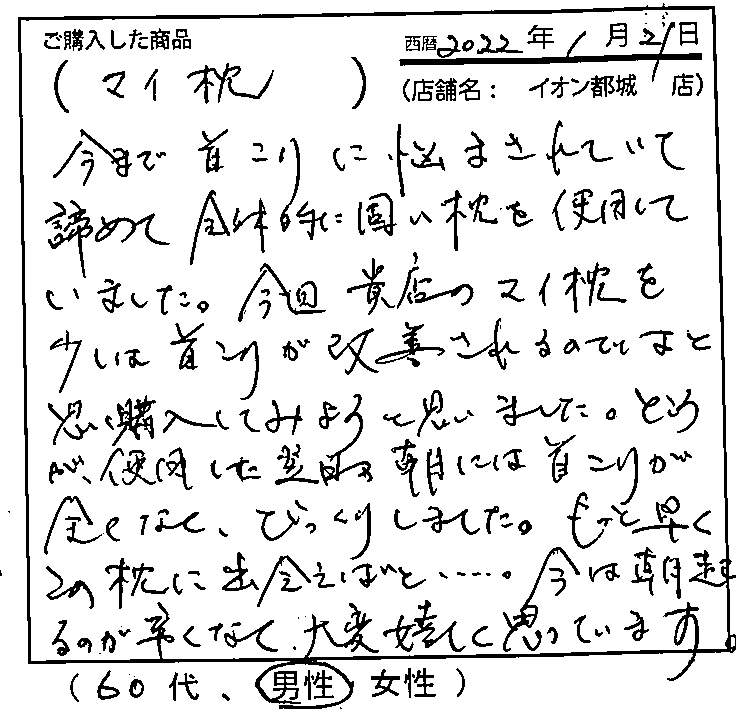 ご購入した商品
西暦2022年1月21日
(マイ枕)
(店舗名: イオン都城 店)
今まで首こりに悩まされていて
諦めて全体的に固い枕を使用して
いました。今回貴店のマイ枕を
少しは首こりが改善されるのではと
思い購入してみようと思いました。ところ
が、使用した翌日の朝には首こりが
全くなく、びっくりしました。もっと早く
この枕に出会えばと……。今は朝起き
るのが辛くなく、大変嬉しく思っています。
(60代、男性 女性)